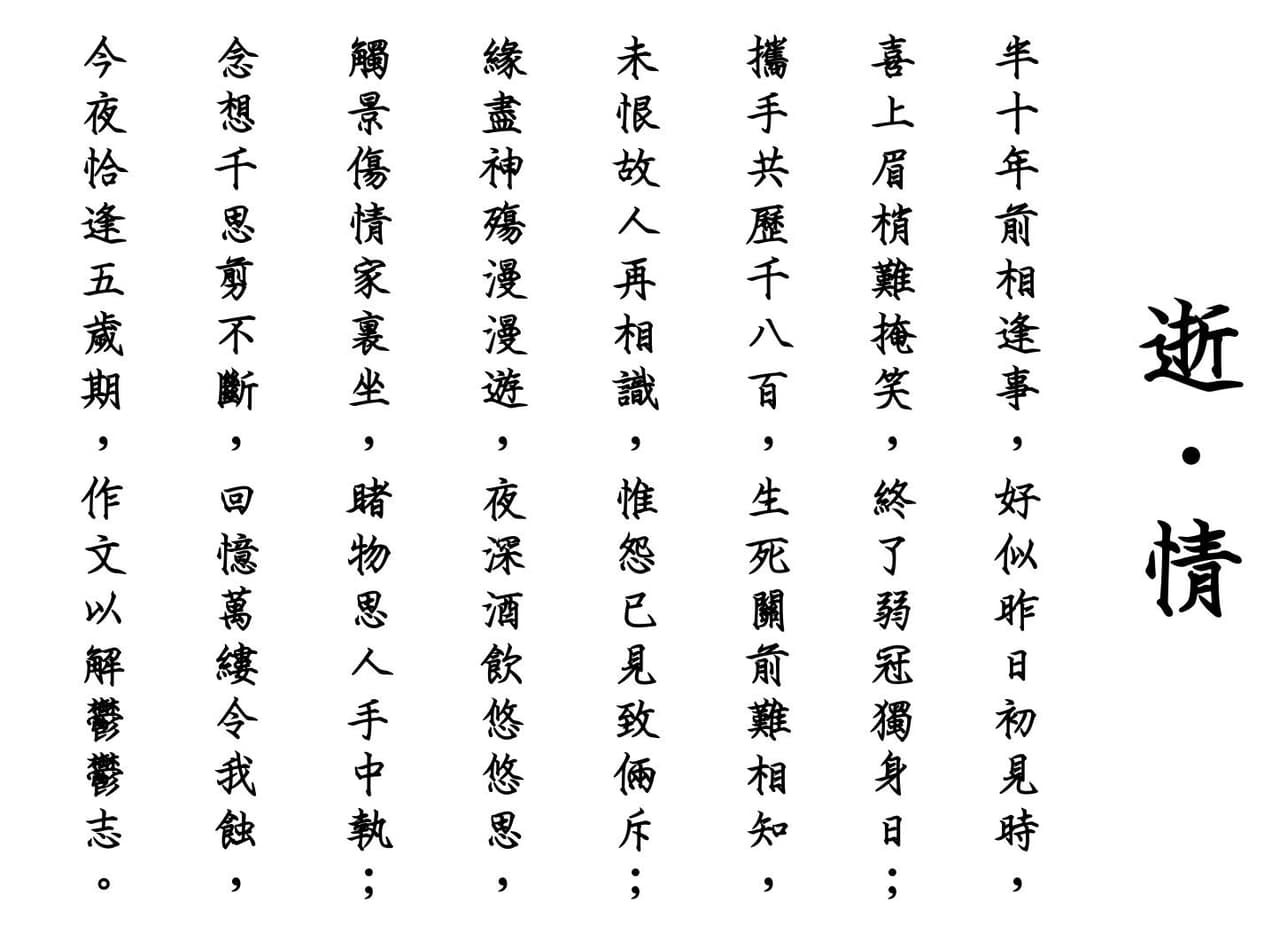 逝·情
半十年前相逢事，好似昨日初見時，
喜上眉梢難掩笑，終了弱冠獨身日；
攜手共歷千八百，生死關前難相知，
未恨故人再相識，惟怨已見致倆斥；
緣盡神殤漫漫遊，夜深酒飲悠悠思，
觸景傷情家裏坐，睹物思人手中執；
念想千思剪不斷，回憶萬縷令我蝕，
今夜恰逢五歲期，作文以解鬱鬱志。